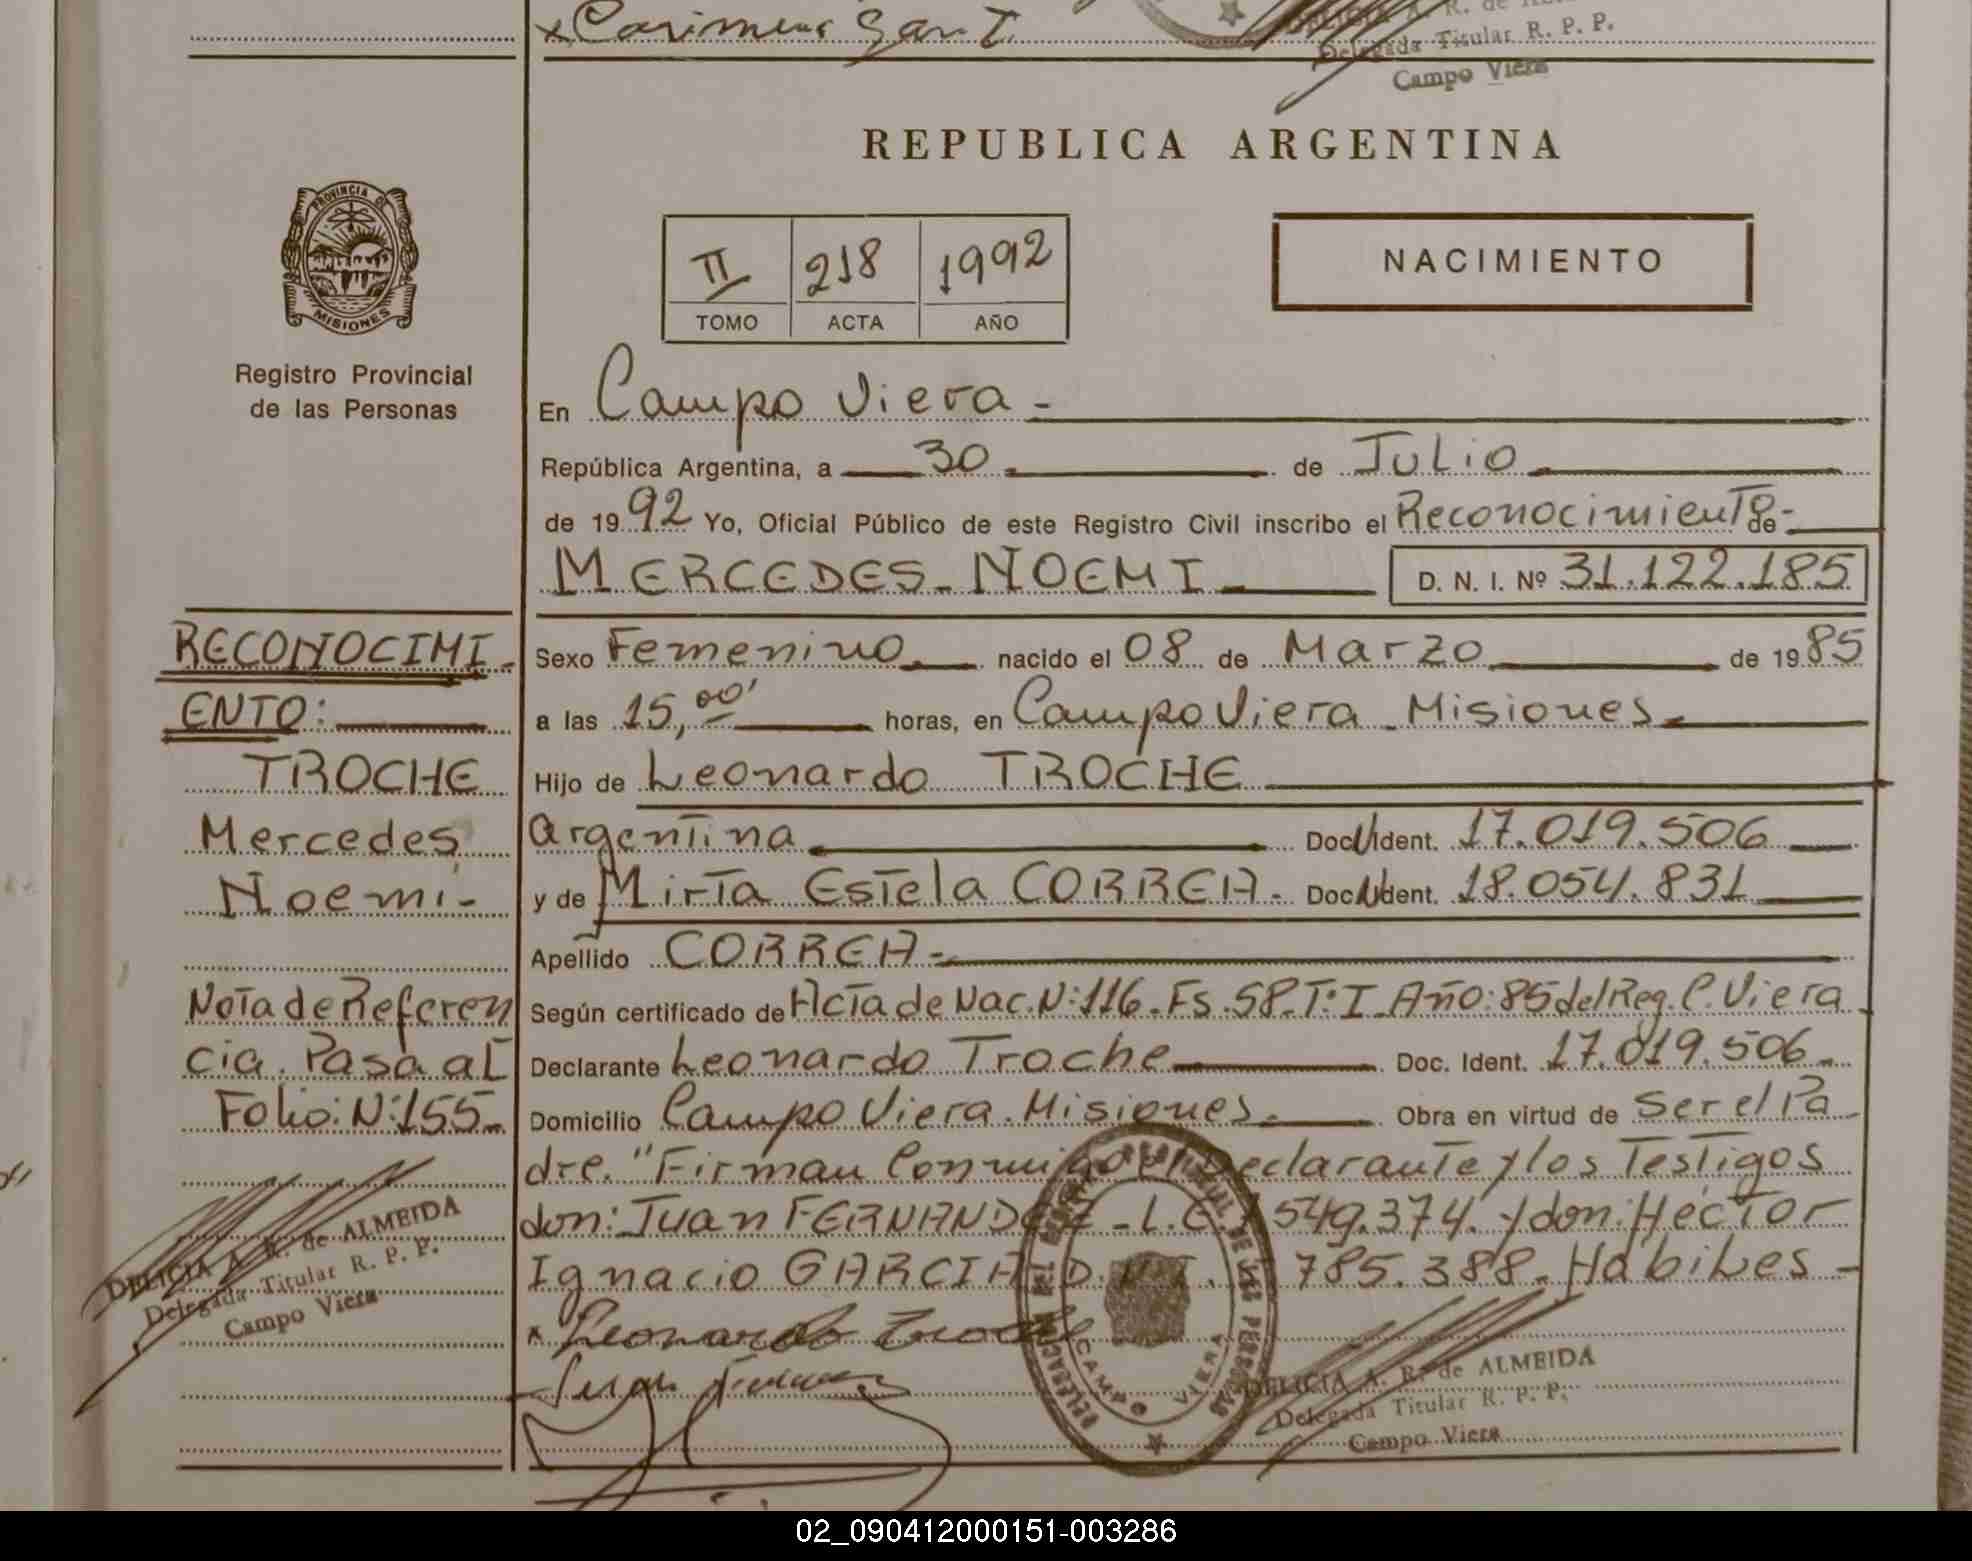 x Carimen Sant
DELICIA A. R. de
Delegada Titular R. P. P.
Campo Viera
REPUBLICA ARGENTINA
PROVINCIA DE
MISIONES
Registro Provincial
de las Personas
II 218 1992
TOMO ACTA AÑO
NACIMIENTO
En Campo Viera -
República Argentina, a 30 de Julio
de 1992 Yo, Oficial Público de este Registro Civil inscribo el Reconocimiento de
MERCEDES NOEMI D. N. I. Nº 31.122.185
Sexo Femenino nacido el 08 de Marzo de 1985
a las 15,00' horas, en Campo Viera Misiones
Hijo de Leonardo TROCHE
Argentina Doc. Ident. 17.019.506
y de Mirta Estela CORREA - Doc. Ident. 18.054.831
Apellido CORREA -
Según certificado de Acta de Nac. N: 116. Fs. 58. T: I. Año: 85 del Reg. C. Viera
Declarante Leonardo Troche Doc. Ident. 17.019.506
Domicilio Campo Viera. Misiones. Obra en virtud de Ser el Pa
dre. "Firman Conmigo el Declarante y los Testigos
don: Juan FERNANDEZ - L.E. 549.374. y don: Héctor
Ignacio GARCIA D.N.I. 785.388. Hábiles -
x Leonardo Troche
RECONOCIMI
ENTO:
TROCHE
Mercedes
Noemi -
Nota de Referen
cia. Pasa al
Folio: N: 155
DELICIA A. R. de ALMEIDA
Delegada Titular R. P. P.
Campo Viera
CAMPO VIERA
DELICIA A. R. de ALMEIDA
Delegada Titular R. P. P.
Campo Viera
02_090412000151-003286